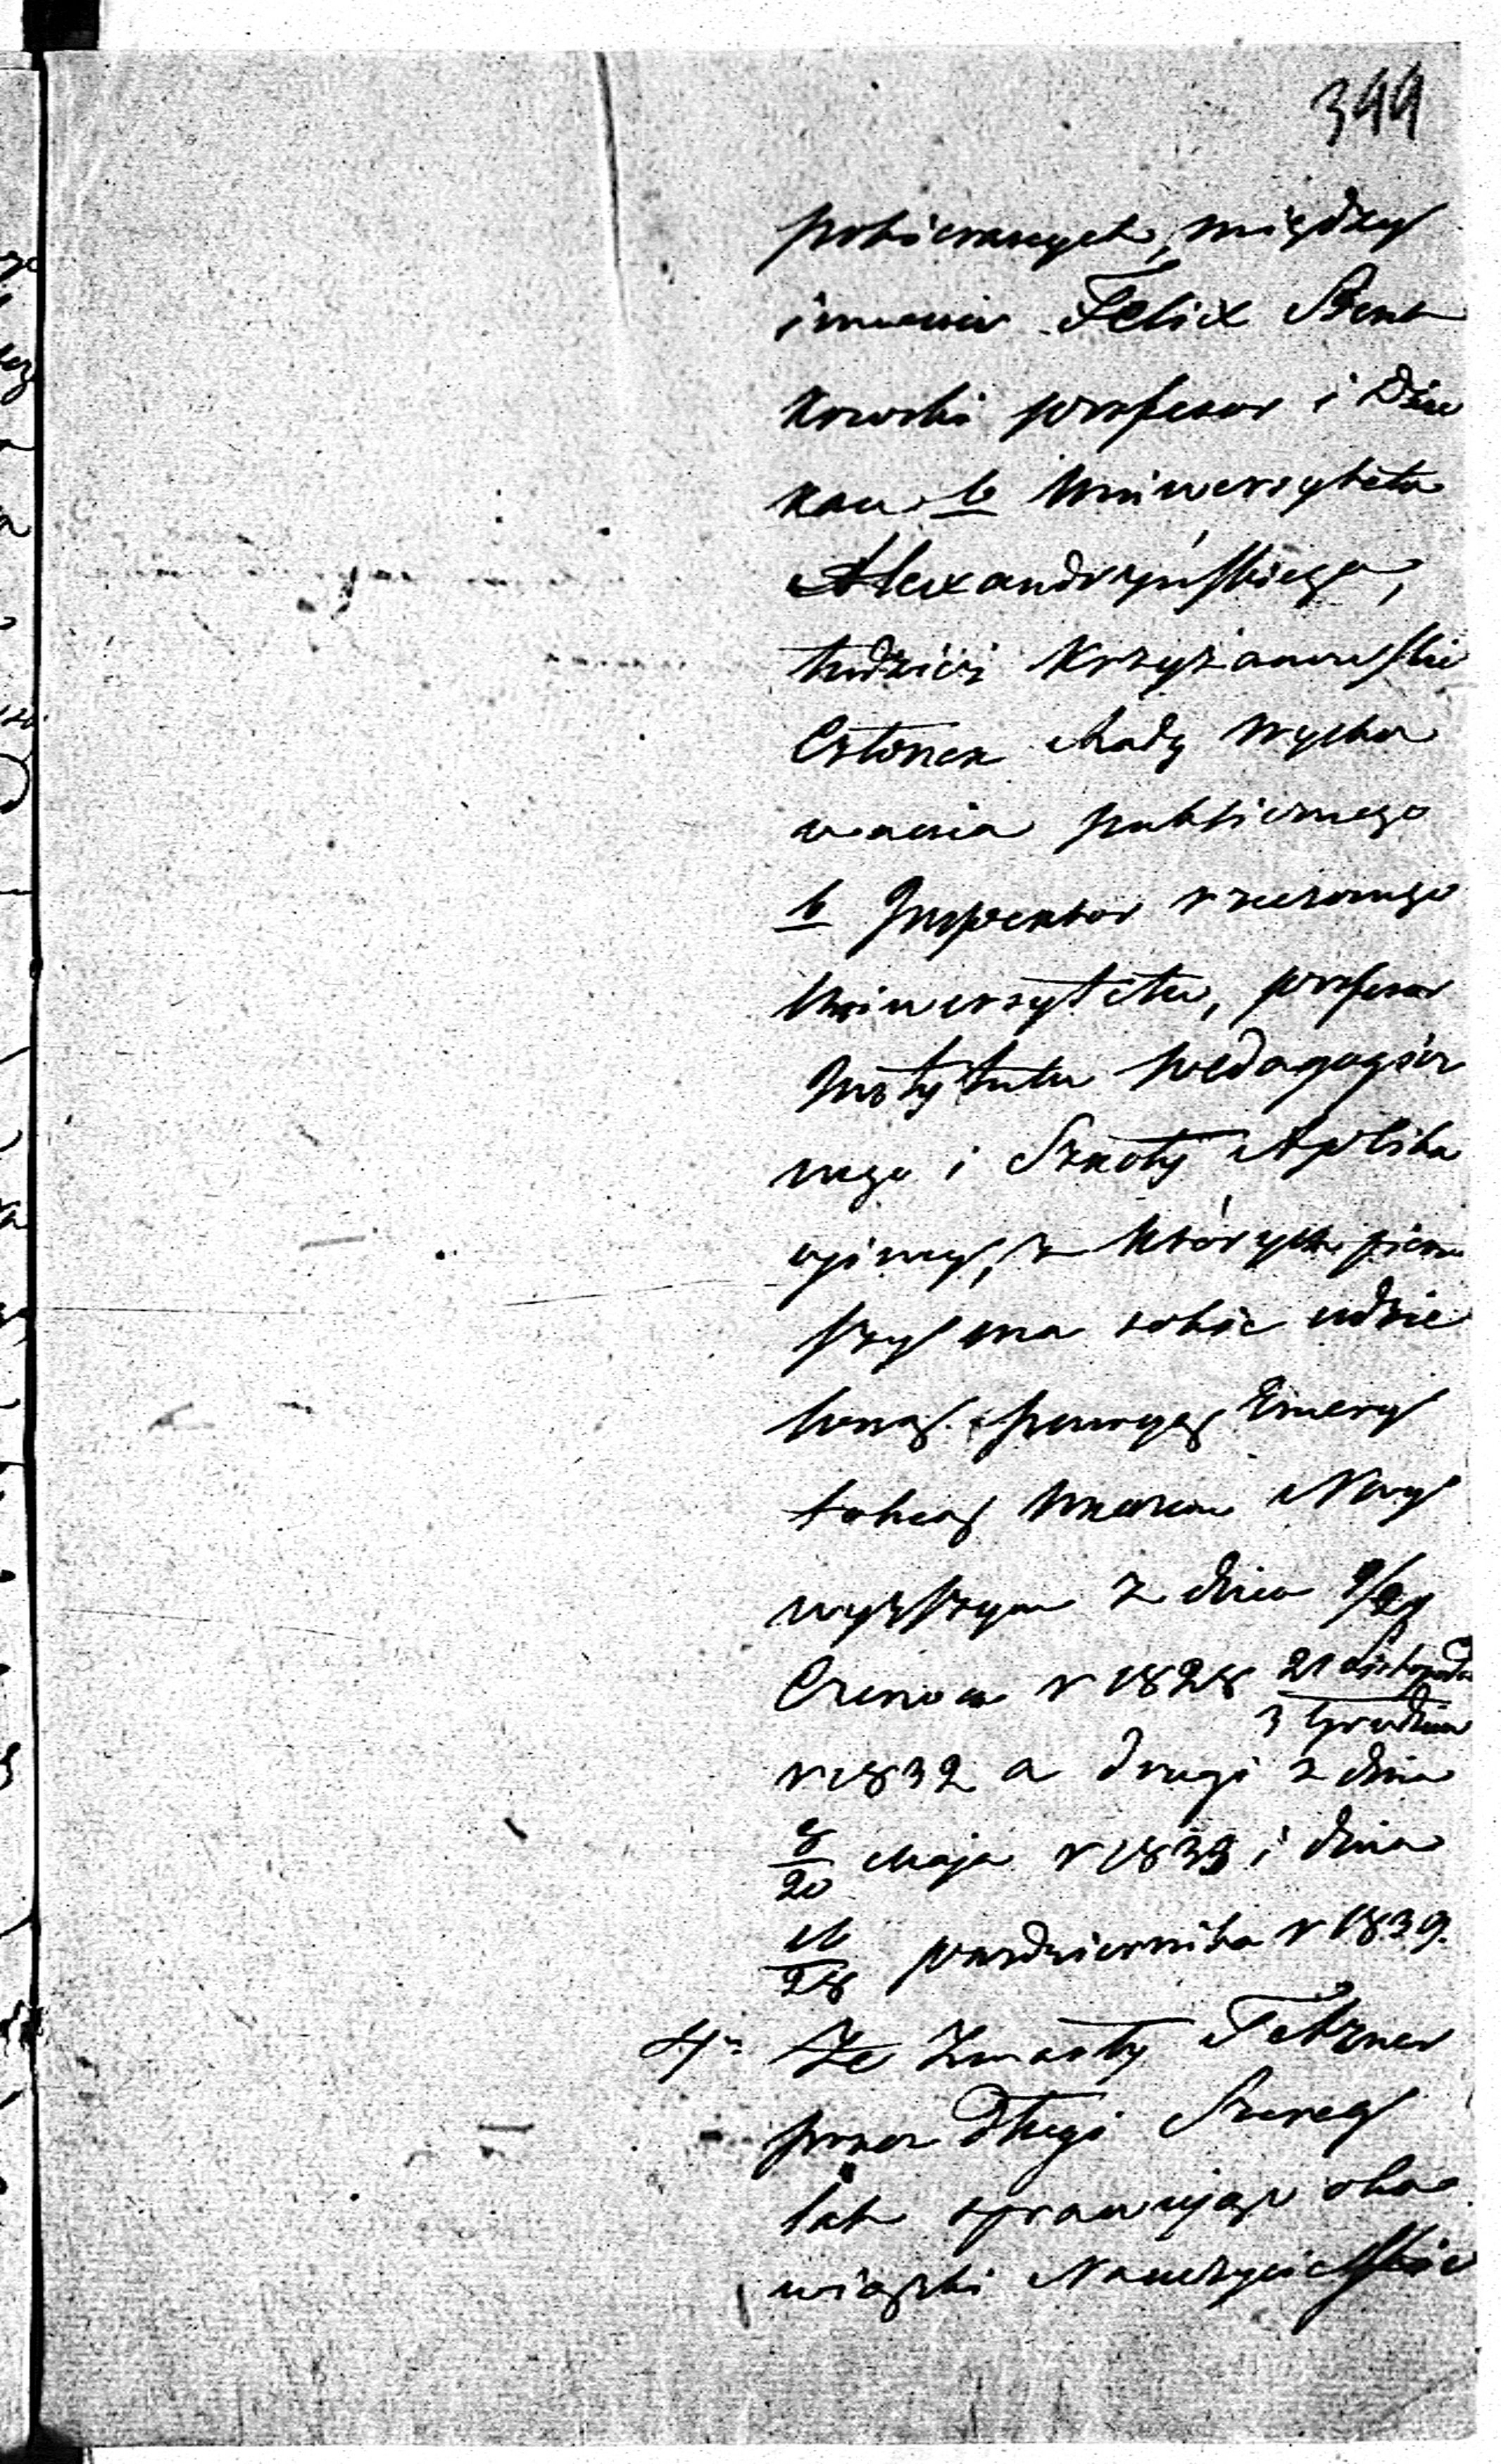 399
pobieranych, między
innemi Felix Bent
kowski profesor i Dzie
kan b Uniwersytetu
Alexandryńskiego,
tudzież Krzyżanowski
Członek Rady Wycho
wania publicznego
b Inspektor rzeczonego
Uniwersytetu, profesor
Instytutu Pedagogicz
nego i Szkoły Aplika
cyjney, z których pierw
szy ma sobie udzie
loną pensyą Emery
talną Ukazem Nay
wyższym z dnia 9/21
Czerwca r 1828 21 Listopada
3 Grudnia
r 1832 a drugi z dnia
8/20 Maja r 1833 i dnia
16/28 października r 1839.
4o Ze Zmarły
przez długi Szereg
lat sprawując obo
wiązki Nauczycielskie